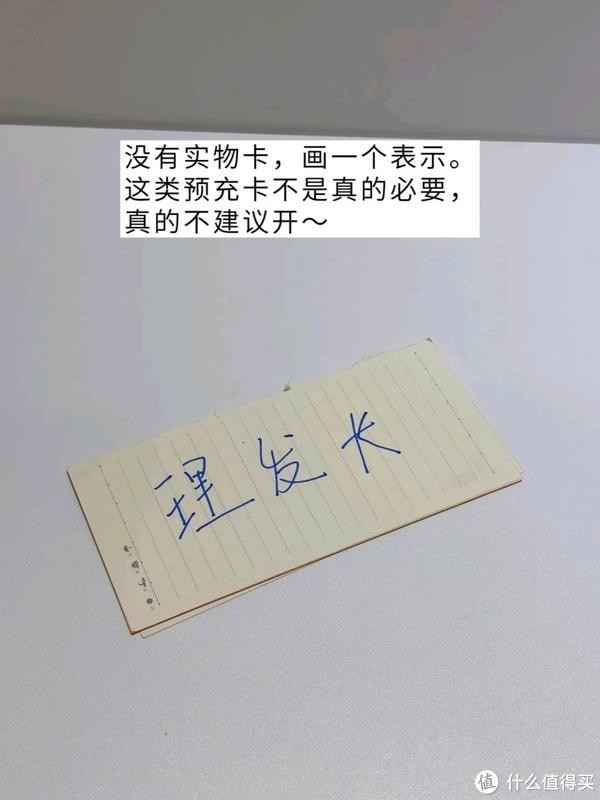 没有实物卡，画一个表示。
这类预充卡不是真的必要，
真的不建议开～
理发长
值 什么值得买